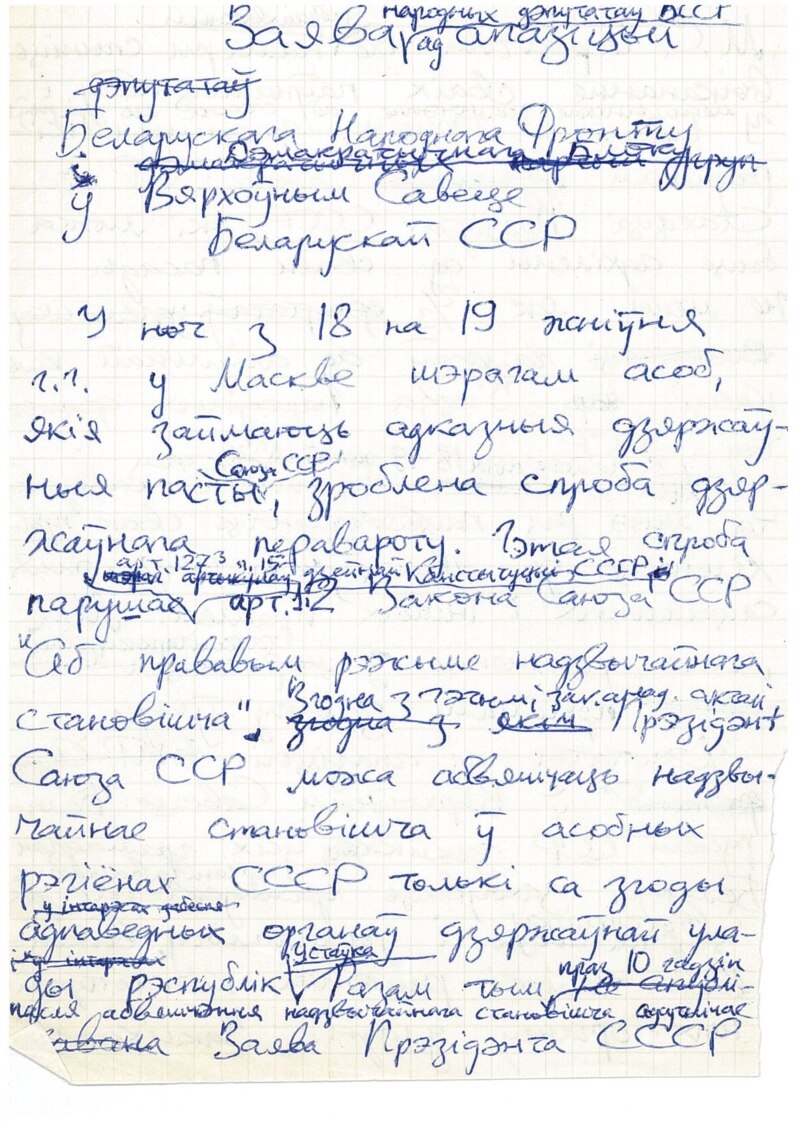 народных дэпутатаў БССР
Заява ад апазіцыі
дэпутатаў
Беларускага Народнага Фронту
Дэмакратычнага блоку
ў Вярхоўным Савеце
Беларускай ССР
У ноч з 18 на 19 жніўня
г.г. у Маскве шэрагам асоб,
якія займаюць адказныя дзяржаў-
Саюза ССР
ныя пасты, зроблена спроба дзяр-
жаўнага перавароту. Гэтая спроба
арт. 127.3 п. 15
дзейнай Канстытуцыі СССР і
парушае арт. 1.2 Закона Саюза ССР
"Аб прававым рэжыме надзвычайнага
Згодна з гэтымі зак. актамі
становішча". згодна з якім Прэзідэнт
Саюза ССР можа абвяшчаць надзвы-
чайнае становішча ў асобных
рэгіёнах СССР толькі са згоды
у інтарэсах
адпаведных органаў дзяржаўнай ула-
Устаўка
ды рэспублік Разам тым
праз 10 гадзін
пасля абвяшчэння надзвычайнага становішча адсутнічае
Заява Прэзідэнта СССР